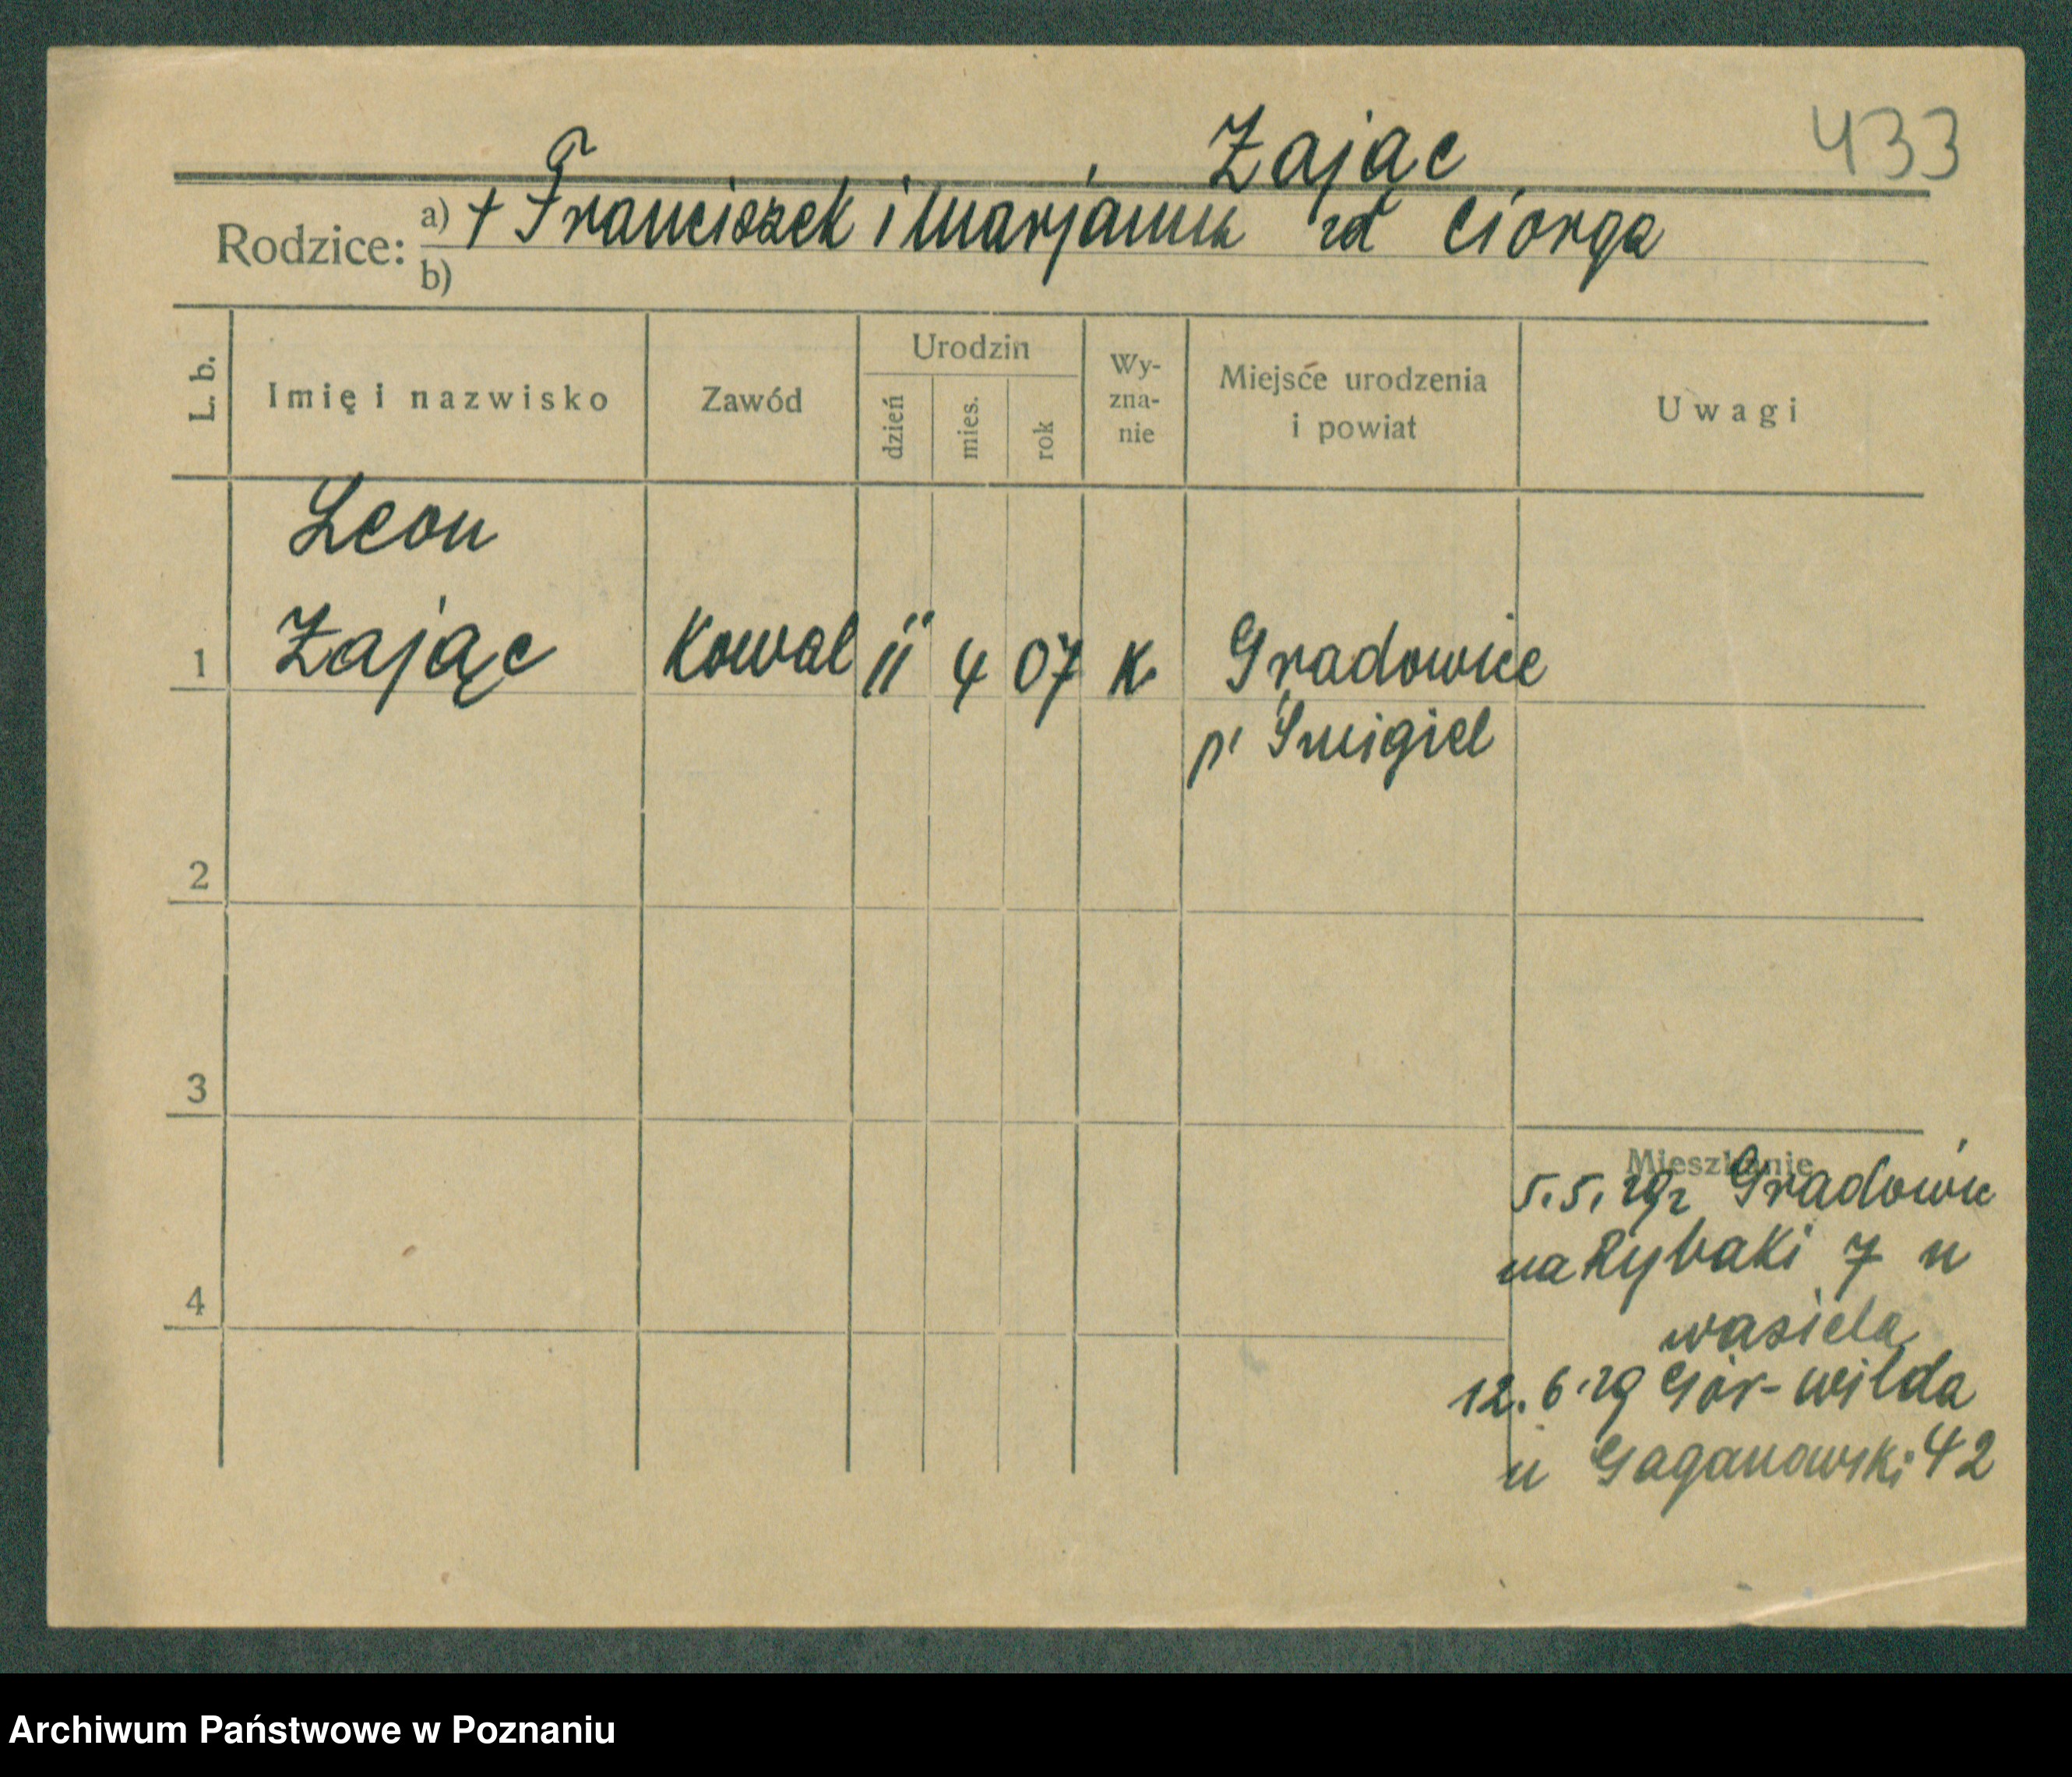 Zając 433
Rodzice: a) + Franciszek i Marjanna zd Ciorga
b)
L. b. Imię i nazwisko Zawód Urodzin dzień mies. rok Wy-zna-nie Miejsce urodzenia i powiat Uwagi
Leon
1 Zając Kowal 11 4 07 K. Gradowice
p. Śmigiel
2
3
Mieszkanie
5.5.29 z Gradowic
na Rybaki 7 u
4
Wasiela
12.6.29 Gór-Wilda
u Gaganowski 42
Archiwum Państwowe w Poznaniu